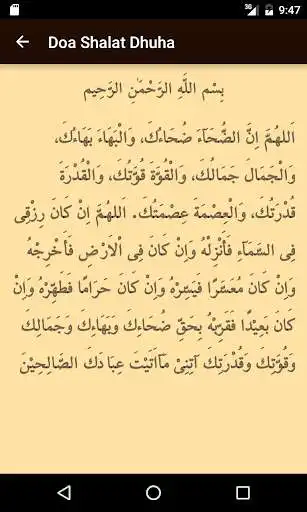 3G
9:47
Doa Shalat Dhuha
بِسْمِ اللَّهِ الرَّحْمَٰنِ الرَّحِيمِ
اَللهُمَّ اِنَّ الضُّحَآءَ ضُحَاءُكَ، وَالْبَهَاءَ بَهَاءُكَ،
وَالْجَمَالَ جَمَالُكَ، وَالْقُوَّةَ قُوَّتُكَ، وَالْقُدْرَةَ
قُدْرَتُكَ، وَالْعِصْمَةَ عِصْمَتُكَ. اَللهُمَّ اِنْ كَانَ رِزْقِى
فِى السَّمَآءِ فَأَنْزِلْهُ وَاِنْ كَانَ فِى اْلاَرْضِ فَأَخْرِجْهُ
وَاِنْ كَانَ مُعَسَّرًا فَيَسِّرْهُ وَاِنْ كَانَ حَرَامًا فَطَهِّرْهُ وَاِنْ
كَانَ بَعِيْدًا فَقَرِّبْهُ بِحَقِّ ضُحَاءِكَ وَبَهَاءِكَ وَجَمَالِكَ
وَقُوَّتِكَ وَقُدْرَتِكَ آتِنِىْ مَآاَتَيْتَ عِبَادَكَ الصَّالِحِيْنَ